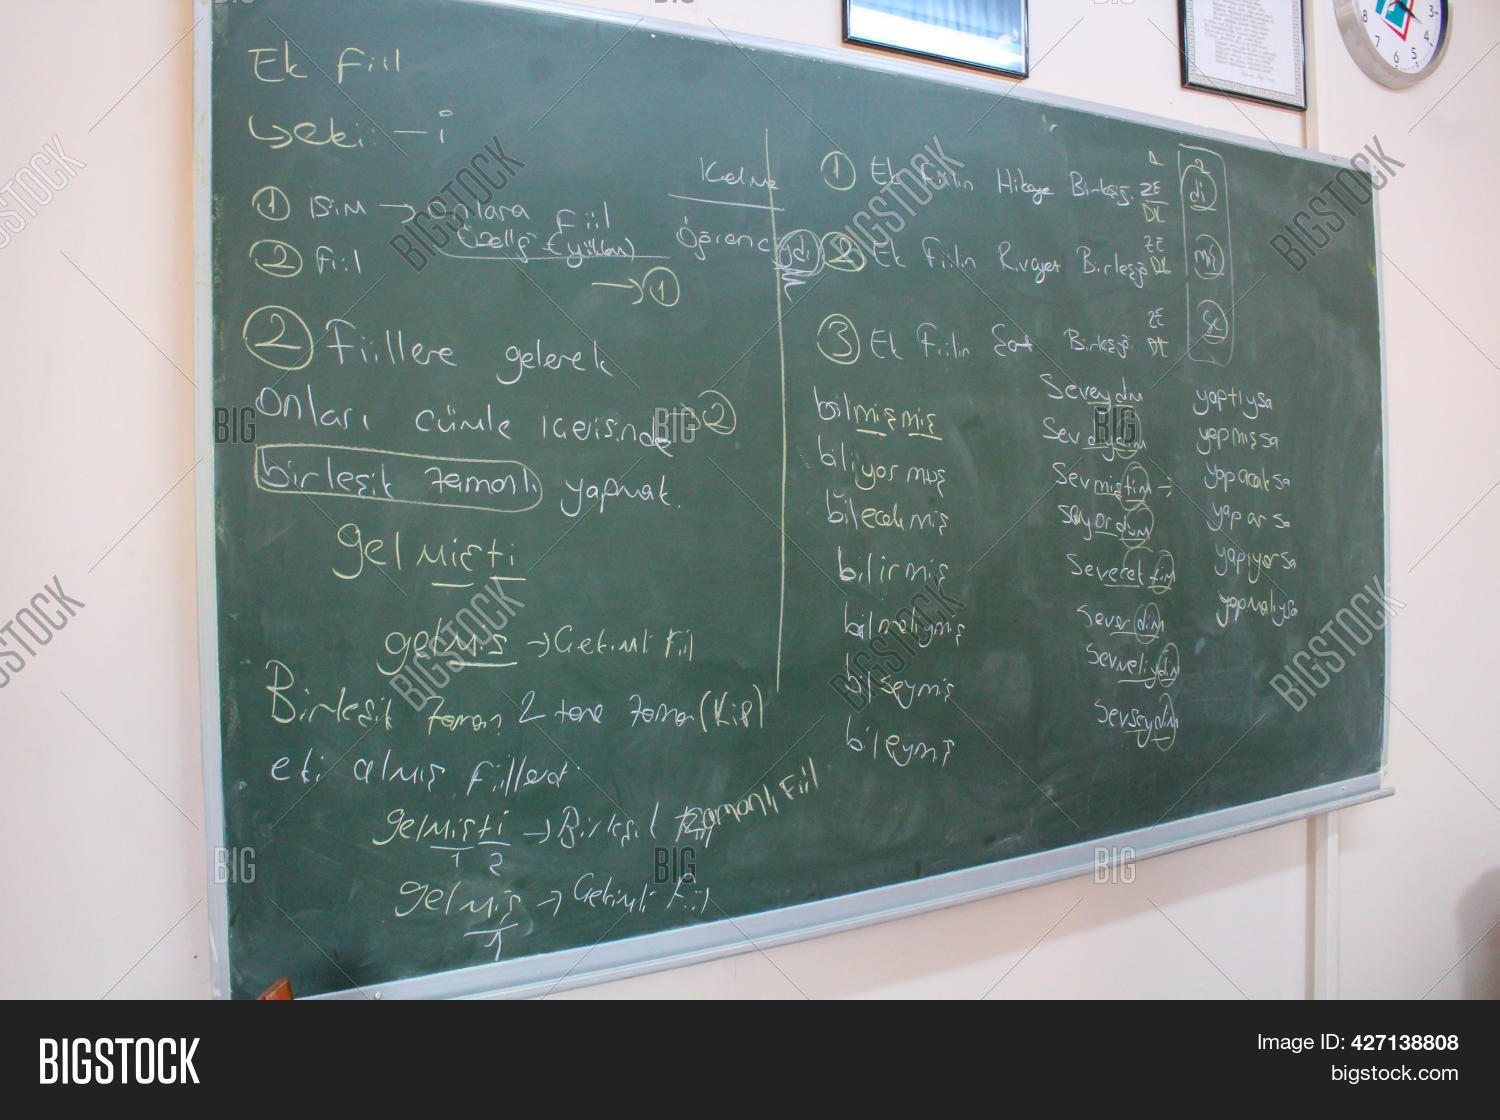 Ek fiil
↳ eki: -i
① isim → onlara fiil
özelliği (yüklem)
② fiil
→ ①
Kelme
Öğrenciydi
② Fiillere gelerek
onları cümle içerisinde → ②
birleşik zamanlı yapmak.
gelmişti
gelmiş → Çekimli fiil
Birleşik zaman 2 tane zaman (kip)
eki almış fiillerdir
gelmişti → Birleşik zamanlı fiil
1 2
gelmiş → Çekimli fiil
1
① Ek fiilin Hikaye Birleşiği
② Ek fiilin Rivayet Birleşiği
③ Ek fiilin Şart Birleşiği
di
mış
se
bilmişmiş
biliyormuş
bilecekmiş
bilirmiş
bilmeliymiş
bilseymiş
bileymiş
Seveydim
Sevmiştim →
Severdim
Sevmeliydim
Sevseydim
yaptıysa
yapmışsa
yapacaksa
yaparsa
yapıyorsa
yapmalıysa
8 7 6 5 4 3
BIGSTOCK
Image ID: 427138808
bigstock.com